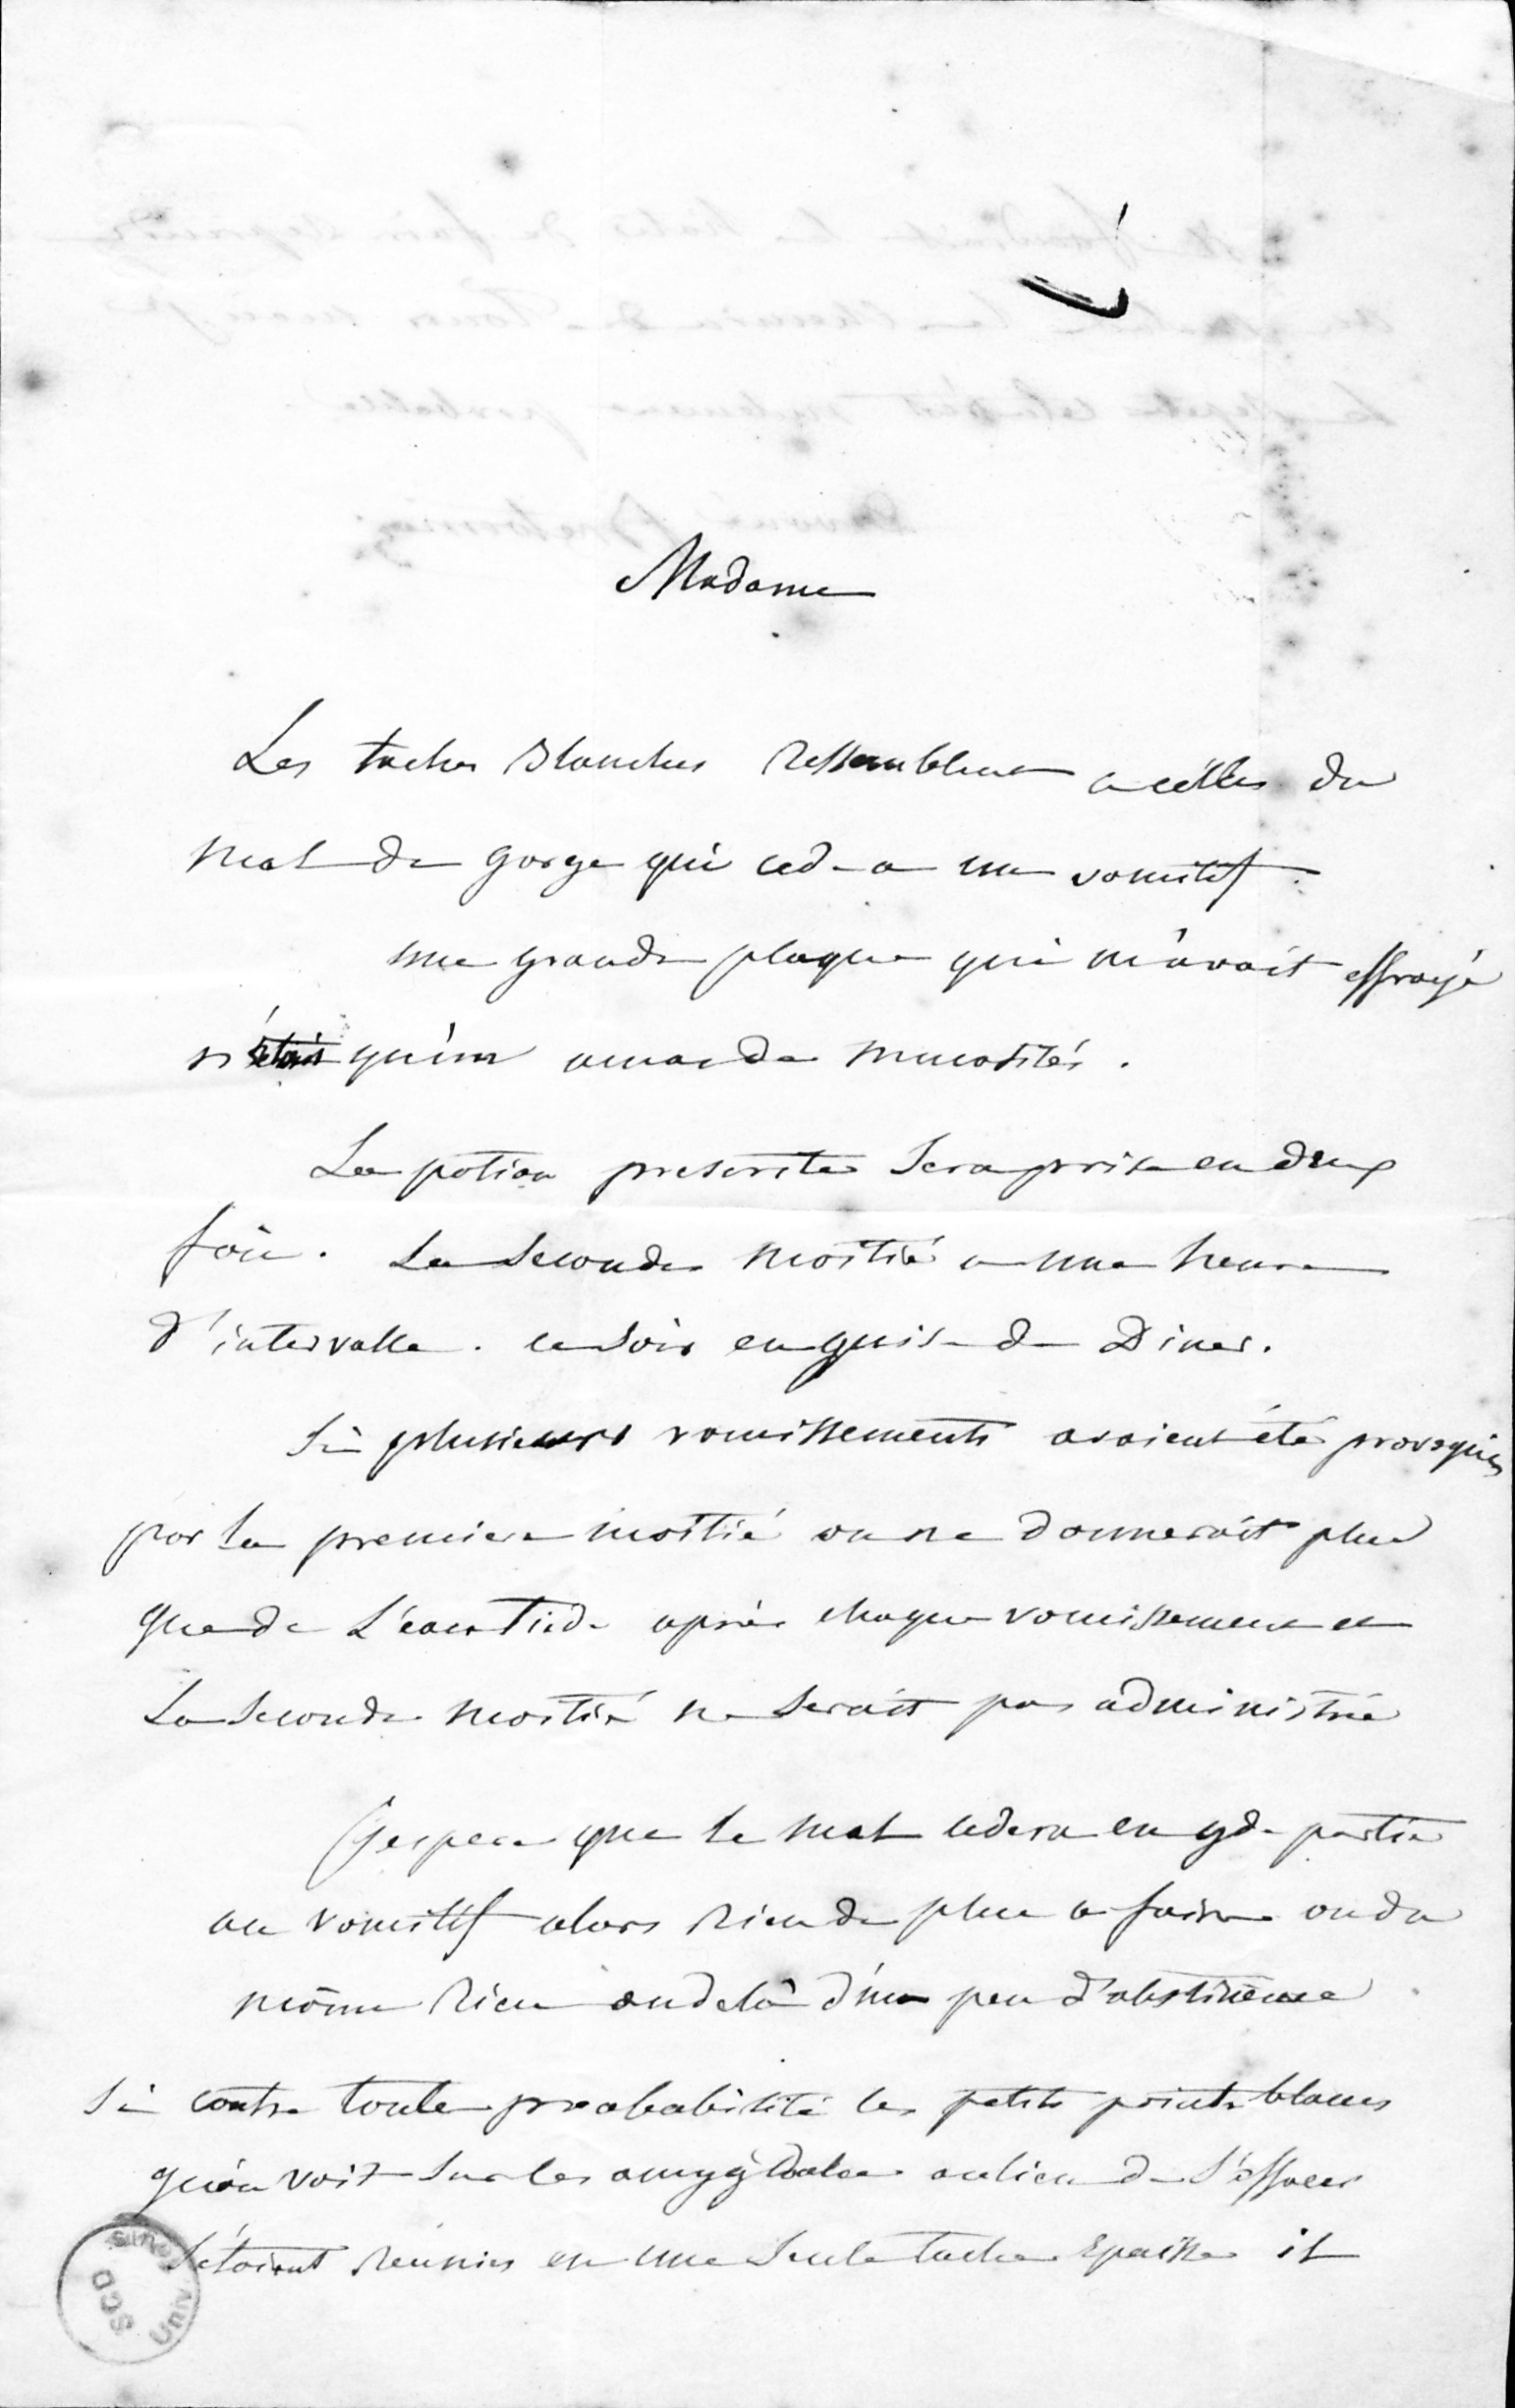 Madame
Les taches blanches ressemblent a celles du
mal de gorge qui cede a un vomitif.
une grande plaque qui m'avait effrayé
n'était qu'un amas de mucosités.
La potion prescrite sera prise en deux
fois. La seconde moitié a une heure
d'intervalle. ce soir en guise de Diner.
Si plusieurs vomissements avaient été provoqués
par la premiere moitié on ne donnerait plus
que de L'eau Tiede après chaque vomissement et
La seconde moitié ne serait pas administrée
J'espere que le mal cedera en gde partie
au vomitif alors rien de plus a faire ou du
moins rien audelà d'un peu d'abstinence
Si contre toute probabilité les petits points blancs
qu'on voit sur les amygdales aulieu de s'effacer
s'étaient réunis en une seule tache épaisse il
Univ. Tours
SCD